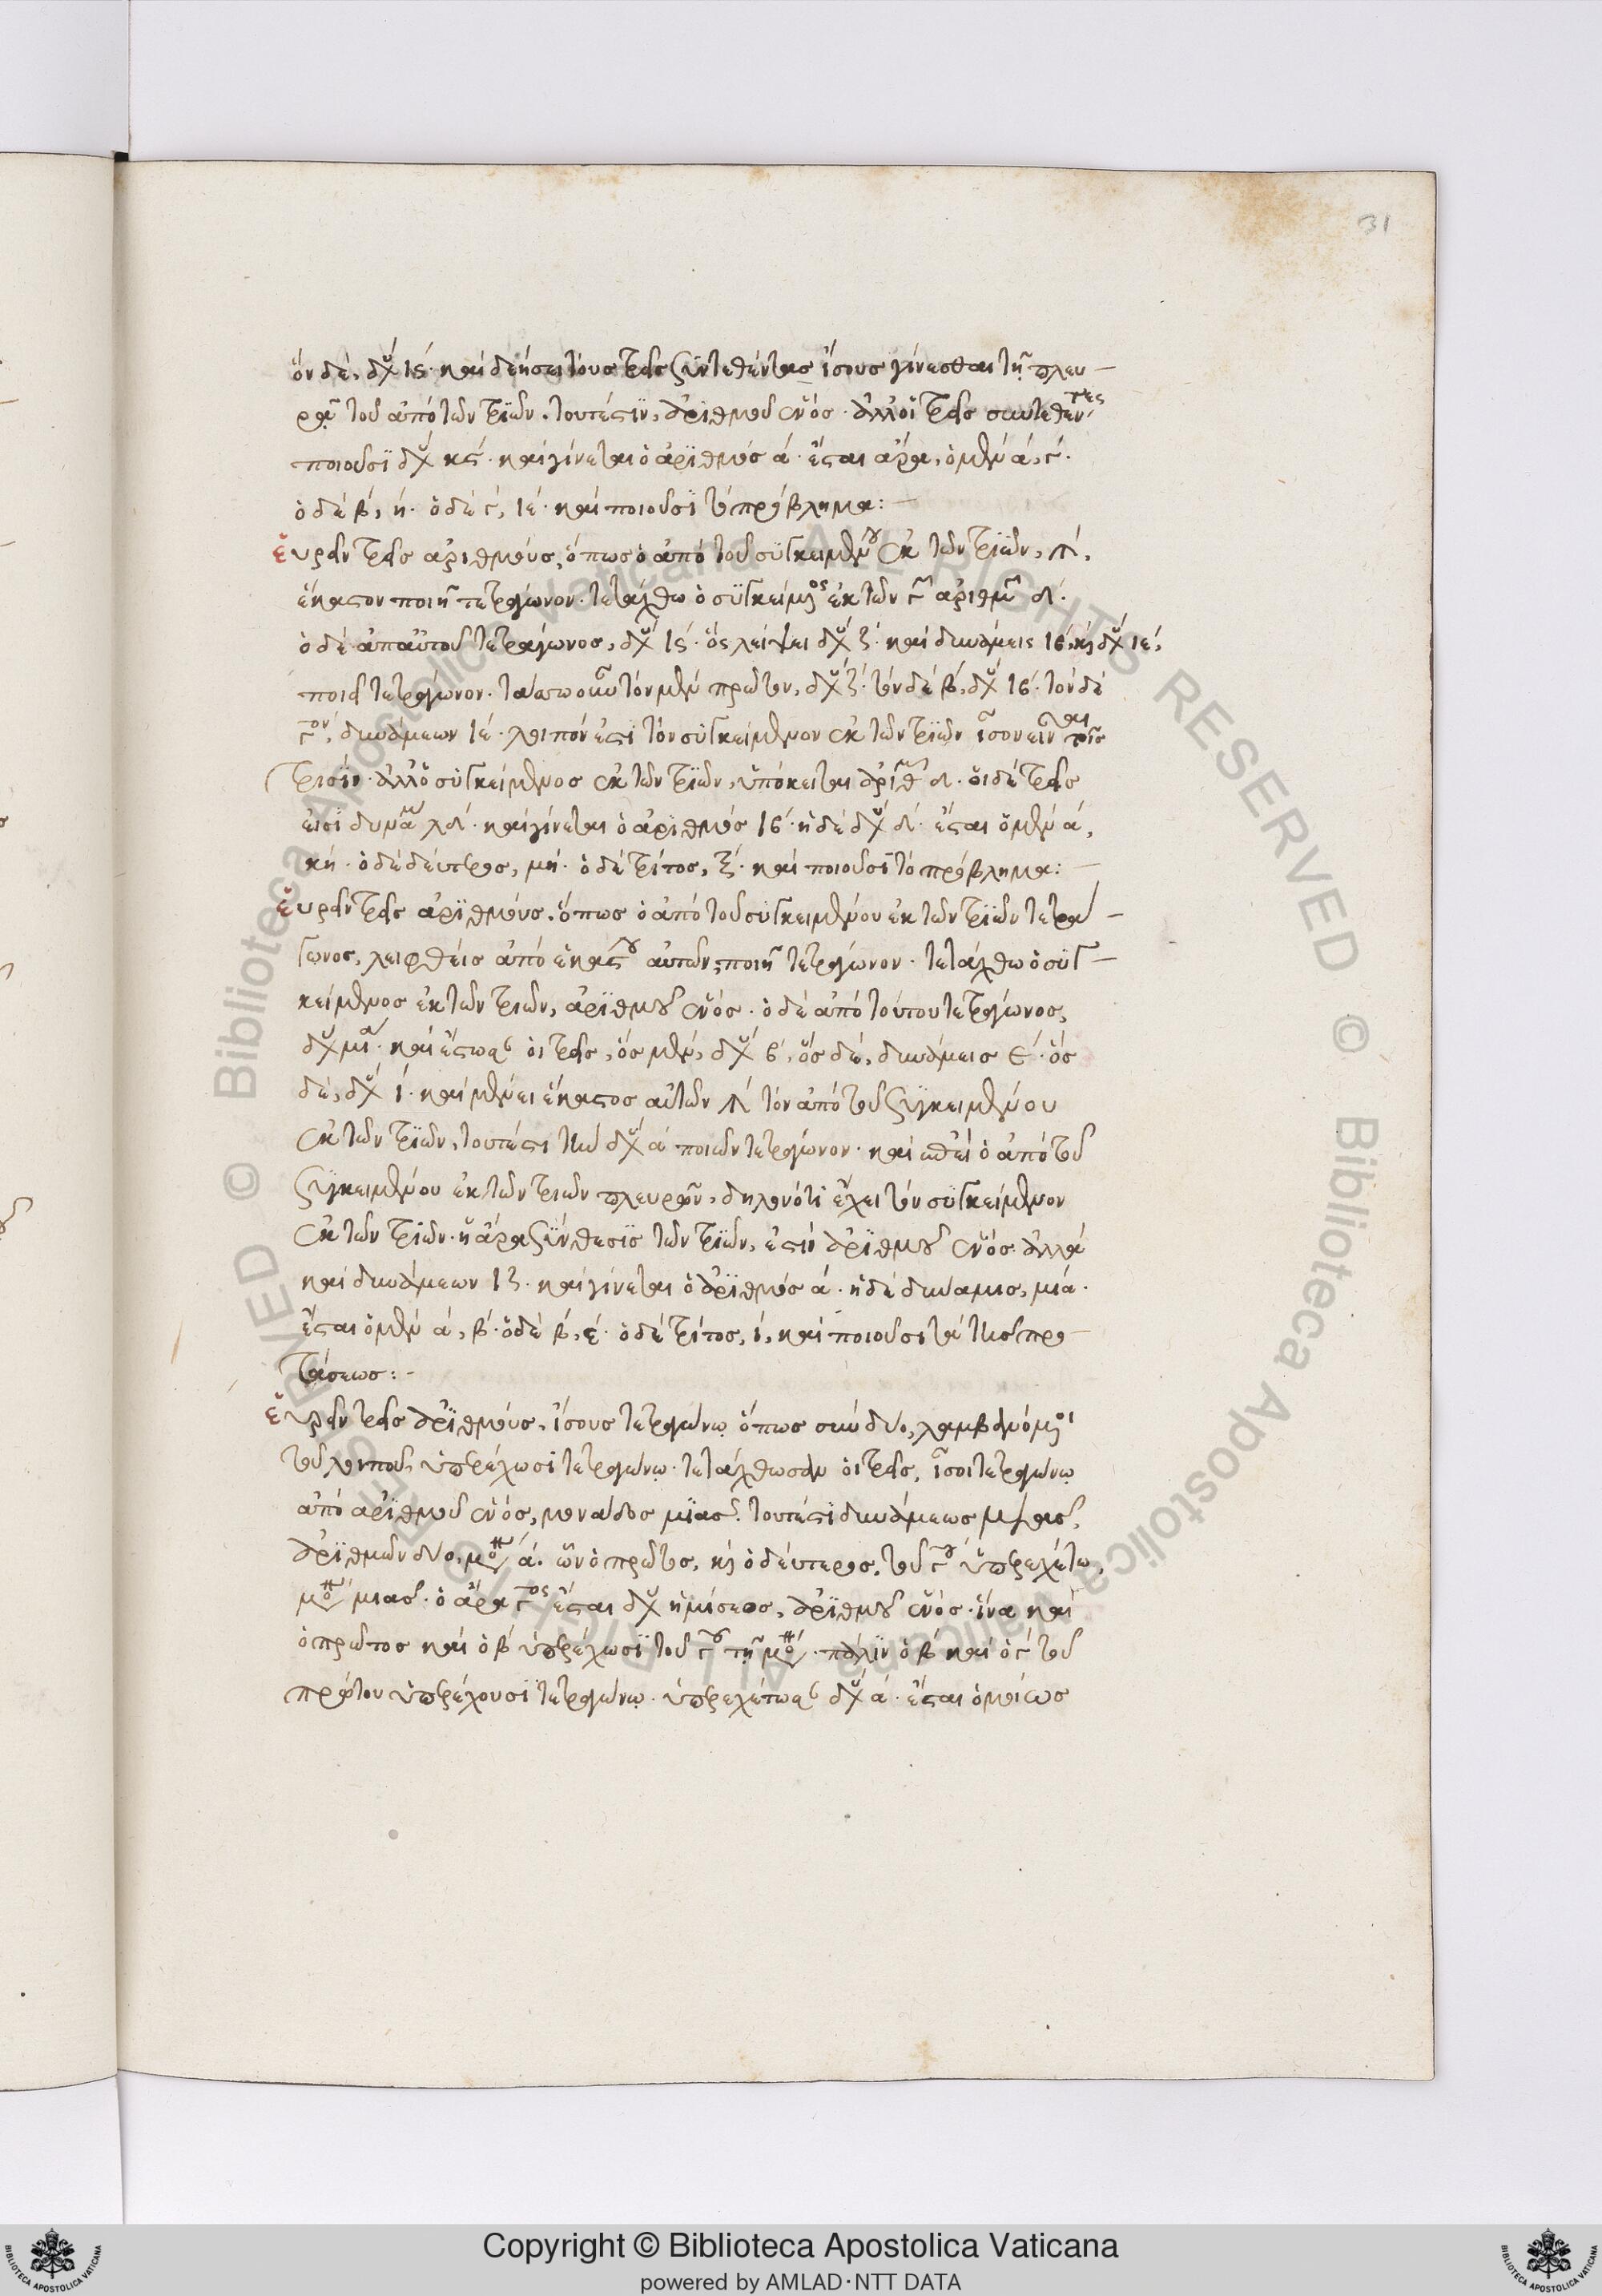 31
ὃν δὲ, δυ ιϛ· καὶ δεήσει τοὺς τρεῖς συντεθέντας ἴσους γίνεσθαι τῇ πλευ–
ρᾷ τοῦ ἀπὸ τῶν τριῶν. τουτέστιν, ἀριθμοῦ ἑνός. ἀλλ' οἱ τρεῖς συντεθέντες
ποιοῦσι δυ κϛ. καὶ γίνεται ὁ ἀριθμός α. ἔσται ἄρα, ὁ μὲν α, γ.
ὁ δὲ β, η. ὁ δὲ γ, ιε. καὶ ποιοῦσι τὸ πρόβλημα:–
εὑρεῖν τρεῖς ἀριθμούς, ὅπως ὁ ἀπὸ τοῦ συγκειμένου ἐκ τῶν τριῶν, λ,
ἕκαστον ποιῇ τετράγωνον. τετάχθω ὁ συγκείμενος ἐκ τῶν γ ἀριθμ δ.
ὁ δὲ ἀπ' αὐτοῦ τετράγωνος, δυ ιϛ. ὃς λείψει δυ ζ. καὶ δυνάμεις ιβ, καὶ δυ ιε,
ποιεῖ τετράγωνον. τὸν μὲν πρῶτον, δυ ζ. τὸν δὲ β, δυ ιβ. τὸν δὲ
γον, δυνάμεων ιε. λοιπόν ἐστι τὸν συγκείμενον ἐκ τῶν τριῶν ἴσον εἶναι τοῖς
τρισίν. ἀλλ' ὁ συγκείμενος ἐκ τῶν τριῶν, ὑπόκειται ἀριθ δ. οἱ δὲ τρεῖς
εἰσὶ δυνάμ λδ. καὶ γίνεται ὁ ἀριθμός ιβ. ἡ δὲ δυ δ. ἔσται ὁ μὲν α,
κη. ὁ δὲ δεύτερος, μη. ὁ δὲ τρίτος, ξ. καὶ ποιοῦσι τὸ πρόβλημα:–
εὑρεῖν τρεῖς ἀριθμούς. ὅπως ὁ ἀπὸ τοῦ συγκειμένου ἐκ τῶν τριῶν τετρά–
γωνος, λειφθεὶς ἀπὸ ἑκάστου αὐτῶν, ποιῇ τετράγωνον. τετάχθω ὁ συγ–
κείμενος ἐκ τῶν τριῶν, ἀριθμοῦ ἑνός. ὁ δὲ ἀπὸ τούτου τετράγωνος,
δυ μία. καὶ ἔστωσαν οἱ τρεῖς, ὃς μὲν, δυ β, ὃς δὲ, δυνάμεις ε. ὃς
δὲ, δυ ι. καὶ μένει ἕκαστος αὐτῶν λ τὸν ἀπὸ τοῦ συγκειμένου
ἐκ τῶν τριῶν, τουτέστι τὴν δυ α ποιῶν τετράγωνον. καὶ ἐπεὶ ὁ ἀπὸ τοῦ
συγκειμένου ἐκ τῶν τριῶν πλευρὰν, δηλονότι ἔχει τὸν συγκείμενον
ἐκ τῶν τριῶν. ἡ ἄρα σύνθεσις τῶν τριῶν, ἐστὶν ἀριθμοῦ ἑνός. ἀλλὰ
καὶ δυνάμεων ιζ. καὶ γίνεται ὁ ἀριθμός α. ἡ δὲ δύναμις, μία.
ἔσται ὁ μὲν α, β. ὁ δὲ β, ε. ὁ δὲ τρίτος, ι, καὶ ποιοῦσι τὰ τῆς προ–
τάσεως:–
εὑρεῖν τρεῖς ἀριθμούς, ἴσους τετραγώνῳ ὅπως σὺν δύο, λαμβανόμενοι
τοῦ λοιποῦ, ὑπερέχωσι τετραγώνῳ. τετάχθωσαν οἱ τρεῖς, ἴσοι τετραγώνῳ
ἀπὸ ἀριθμοῦ ἑνός, μονάδος μιᾶς. τουτέστι δυνάμεως μιᾶς,
ἀριθμῶν δύο, μο α. ὧν ὁ πρῶτος, καὶ ὁ δεύτερος, τοῦ γου ὑπερεχέτω,
μο μιᾶς. ὁ ἄρα γος ἔσται δυ ἡμίσεως, ἀριθμοῦ ἑνός. ἵνα καὶ
ὁ πρῶτος καὶ ὁ β ὑπερέχωσι τοῦ γου τῇ μο. πάλιν ὁ β καὶ ὁ γ τοῦ
πρώτου ὑπερέχουσι τετραγώνῳ. ὑπερεχέτωσαν δυ α. ἔσται ὁμοίως